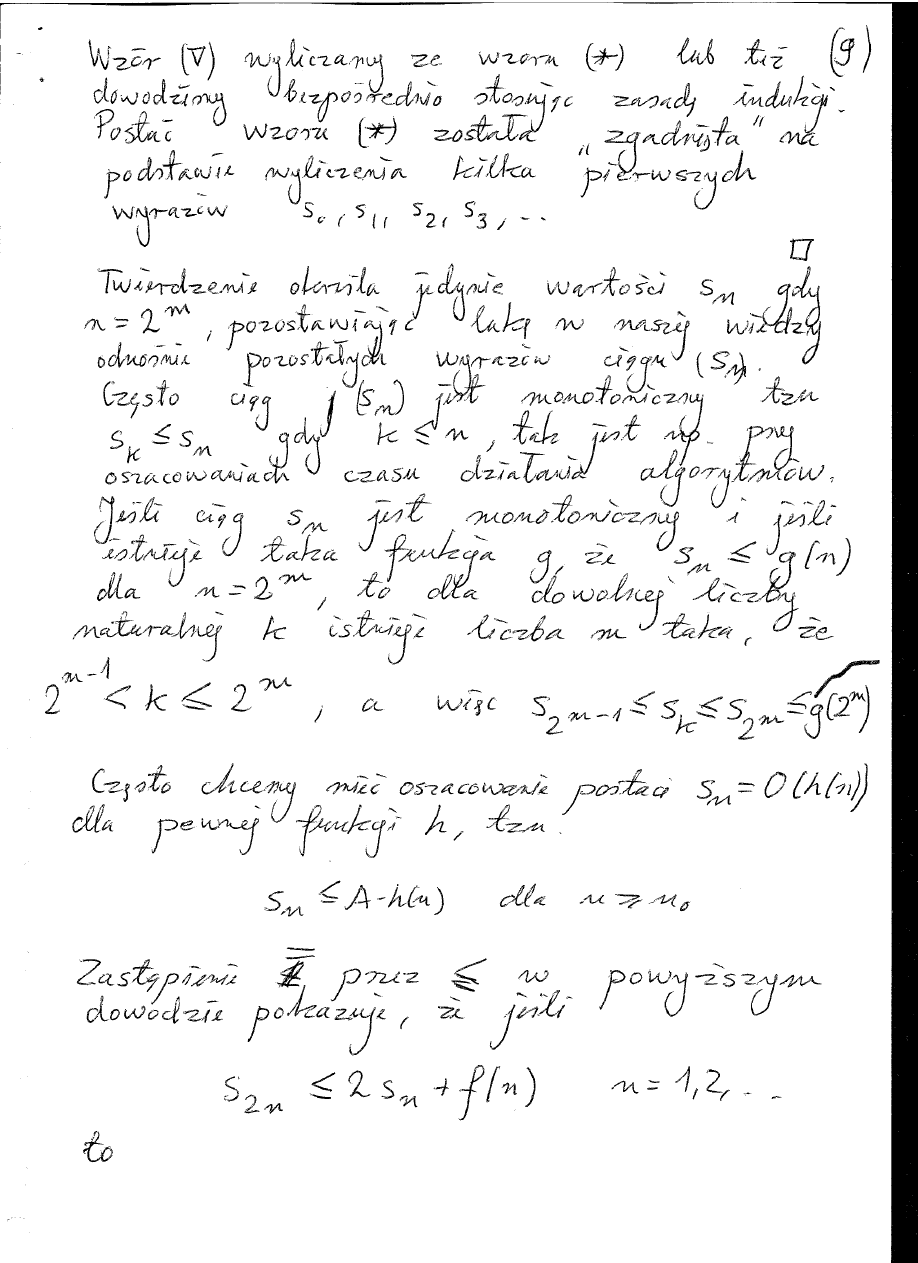 Wzór (∇) wyliczamy ze wzoru (*) lub też (9)
dowodzimy bezpośrednio stosując zasadę indukcji.
Postać wzoru (*) została „zgadnięta" na
podstawie wyliczenia kilka pierwszych
wyrazów s₀, s₁, s₂, s₃, ...
□
Twierdzenie określa jedynie wartości sₙ gdy
n = 2^m, pozostawiając lukę w naszej wiedzy
odnośnie pozostałych wyrazów ciągu (sₙ).
Często ciąg (sₙ) jest monotoniczny tzn
s_k ≤ sₙ gdy k ≤ n, tak jest np. przy
oszacowaniach czasu działania algorytmów.
Jeśli ciąg sₙ jest monotoniczny i jeśli
istnieje taka funkcja g, że sₙ ≤ g(n)
dla n = 2^m, to dla dowolnej liczby
naturalnej k istnieje liczba m taka, że
2^{m-1} < k ≤ 2^m, a więc s_{2^{m-1}} ≤ s_k ≤ s_{2^m} ≤ g(2^m)
Często chcemy mieć oszacowanie postaci sₙ = O(h(n))
dla pewnej funkcji h, tzn.
sₙ ≤ A·h(n) dla n ≥ n₀
Zastąpienie = przez ≤ w powyższym
dowodzie pokazuje, że jeśli
s_{2n} ≤ 2sₙ + f(n) n = 1,2,...
to